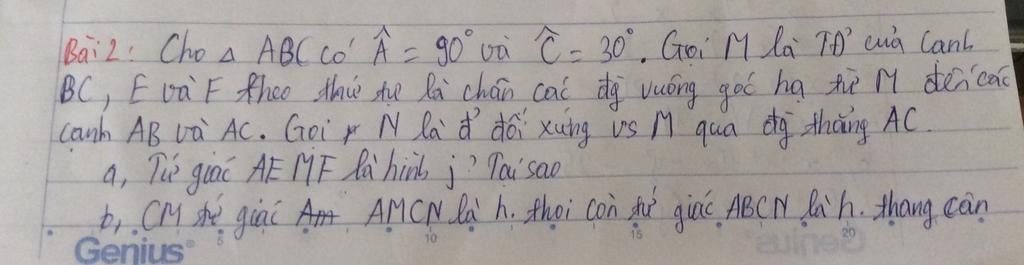 Bài 2: Cho △ ABC có Â = 90° và Ĉ = 30°. Gọi M là TĐ' của cạnh
BC, E và F theo thứ tự là chân các đg vuông góc hạ từ M đến các
cạnh AB và AC. Gọi N là đ' đối xứng vs M qua đg thẳng AC.
a, Tứ giác AEMF là hình j? Tại sao
b, CM tứ giác AMCN là h. thoi còn tứ giác ABCN là h. thang cân
5 10 15 20
Genius